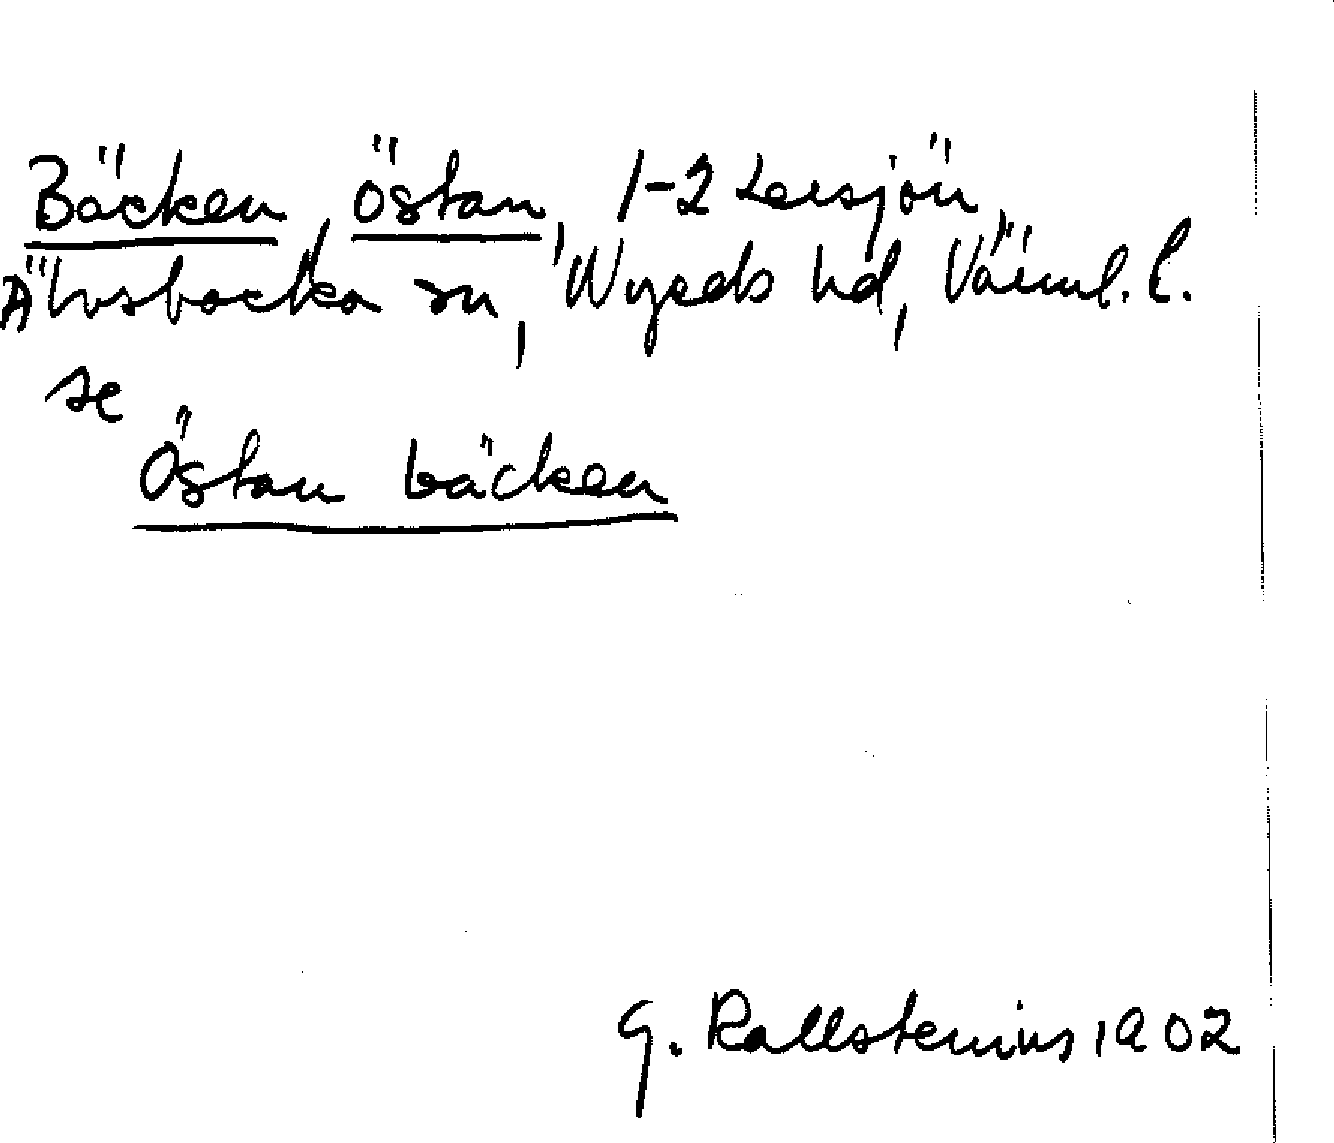 Bäcken, Östan, 1-2 Lersjön,
Älvsbacka sn, Nyeds hd, Värml. l.
se
Östan bäcken
G. Kallstenius 1902